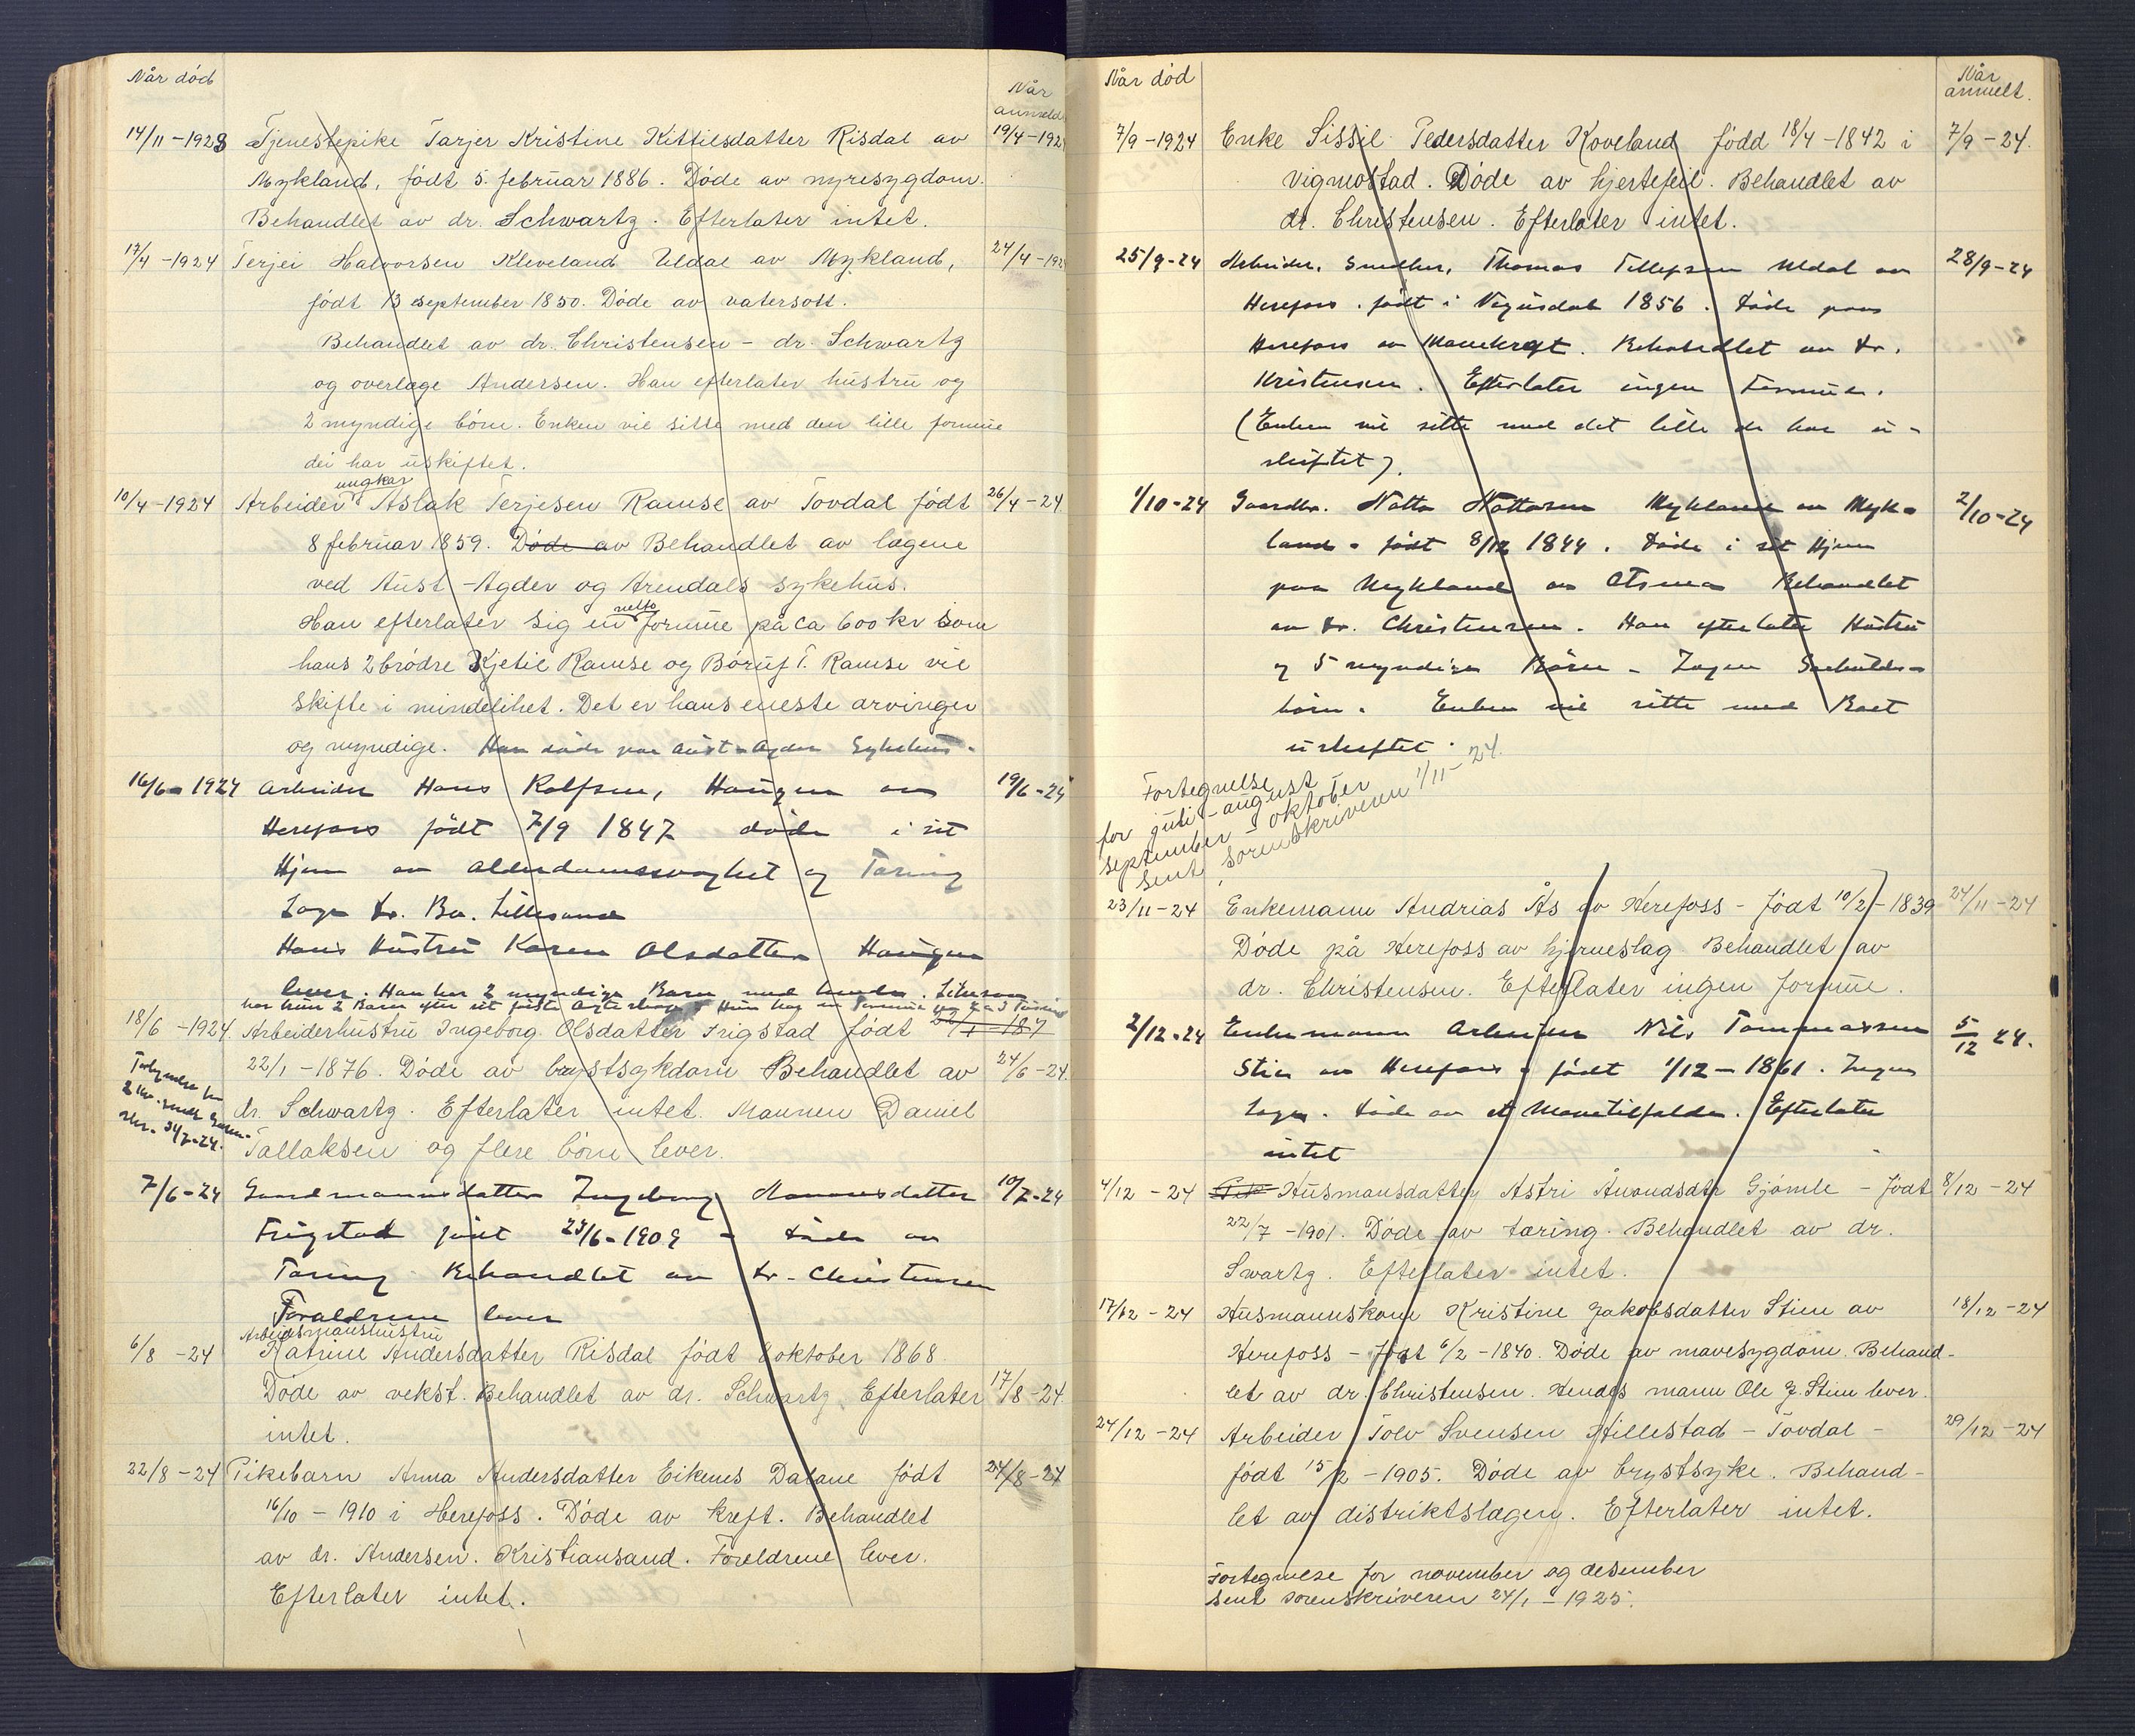 Når død
Når anmeldt
14/11-1923 Tjenestepike Tarjer Kristine Kittilsdatter Risdal av 19/4-192
Mykland, født 5. februar 1886. Døde av nyresygdom.
Behandlet av dr. Schwartz. Efterlater intet.
17/4-1924 Terjei Halvorsen Kleveland Uldal av Mykland, 24/4-192
født 13 september 1850. Døde av vatersott.
Behandlet av dr. Christensen - dr. Schwartz
og overlæge Andersen. Han efterlater hustru og
2 myndige børn. Enken vil sitte med den lille formue
dei har uskiftet.
ungkar
10/4-1924 Arbeider Aslak Terjesen Ramse av Tovdal født 26/4-24
8 februar 1859. Døde av Behandlet av lægene
ved Aust-Agder og Arendals sykehus.
netto
Han efterlater sig en formue på ca 600 kr som
hans 2 brødre Kjetil Ramse og Børuf T. Ramse vil
skifte i mindelihet. Det er hans eneste arvinger
og myndige. Han døde paa Aust-Agder Sykehus.
16/6-1924 Arbeider Hans Rolfsen, Haugen av 19/6-24
Herefoss født 7/9 1847 døde i sit
Hjem av Alderdomssvaghet og Tæring
Læge Dr. Bu. Lillesand
Hans Hustru Karen Olsdatter Haugen
lever. Han har 2 myndige Barn med hende. Likesom
har hun 2 Barn efter sit første Ægteskap. Hun har en Formue
18/6-1924. Arbeiderhustru Ingeborg Olsdatter Frigstad født 22/1-187
22/1-1876. Døde av brystsykdom Behandlet av 24/6-24.
dr. Schwartz. Efterlater intet. Mannen Daniel
Tallaksen og flere børn lever.
Fortegnelse for
2 kv. sendt Soren-
skr. 31/7-24.
7/6-24 Gaardmannsdatter Ingeborg datter 10/7-24
Frigstad født 23/6-1909 - døde av
Tæring Behandlet av Dr. Christensen
Foræeldrene lever
Arbeidsmanshustru
6/8-24 Katrine Andersdatter Risdal født 8 oktober 1868.
Døde av vekst. Behandlet av dr. Schwartz. Efterlater 17/8-24.
intet.
22/8-24 Pikebarn Anna Andersdatter Eikenes Dalane født 24/8-24
16/10-1910 i Herefoss. Døde av kreft. Behandlet
av dr. Andersen. Kristiansand. Foreldrene lever.
Efterlater intet.
Når død
Når anmelt.
7/9-1924 Enke Sissil Pedersdatter Koveland født 18/4-1842 i 7/9-24.
Vigmostad. Døde av hjertefeil. Behandlet av
dr. Christensen. Efterlater intet.
25/9-24 Arbeider, Snedker, Thomas Tellefsen Uldal av 28/9-24
Herefoss. født i Vegusdal 1856. Døde paa
Herefoss av Mavekræft. Behandlet av Dr.
Kristensen. Efterlater ingen Formue.
(Enken vil sitte med det lille de har u-
skiftet).
1/10-24 Gaardbr. Notto Nottosen Mykland av Myk- 2/10-24
land. født 8/12 1844. Døde i sit Hjem
paa Mykland av Atsma Behandlet
av Dr. Christensen. Han efterlater Hustru
og 5 myndige Børn - Ingen Særkulds-
børn. Enken vil sitte med Boet
uskiftet.
Fortegnelse
for juli - august
september - oktober
sent sorenskriveren 1/11-24.
23/11-24 Enkemann Andrias Ås av Herefoss - født 10/2-1839 24/11-24
Døde på Herefoss av hjerneslag Behandlet av
dr. Christensen. Efterlater ingen formue.
2/12-24 Enkemann Arbeider Nils Tommassen 5/12 24.
Stie av Herefoss født 1/12-1861. Ingen
Læge. Døde av et Mavetilfælde. Efterlater
intet
4/12-24 Pik Husmansdatter Astri Åvandsdtr Gjømle - født 8/12-24
22/7-1901. Døde av tæring. Behandlet av dr.
Swartz. Efterlater intet.
17/12-24 Husmannskone Kristine Jakobsdatter Stien av 18/12-24
Herefoss - født 6/2-1840. Døde av mavesygdom. Behand-
let av dr. Christensen. Hendes mann Ole J. Stien lever.
24/12-24 Arbeider Tolv Svensen Hillestad - Tovdal - 29/12-24
født 15/2-1905. Døde av brystsyke. Behand-
let av distriktslægen. Efterlater intet.
Fortegnelse for november og desember
sent sorenskriveren 24/1-1925.